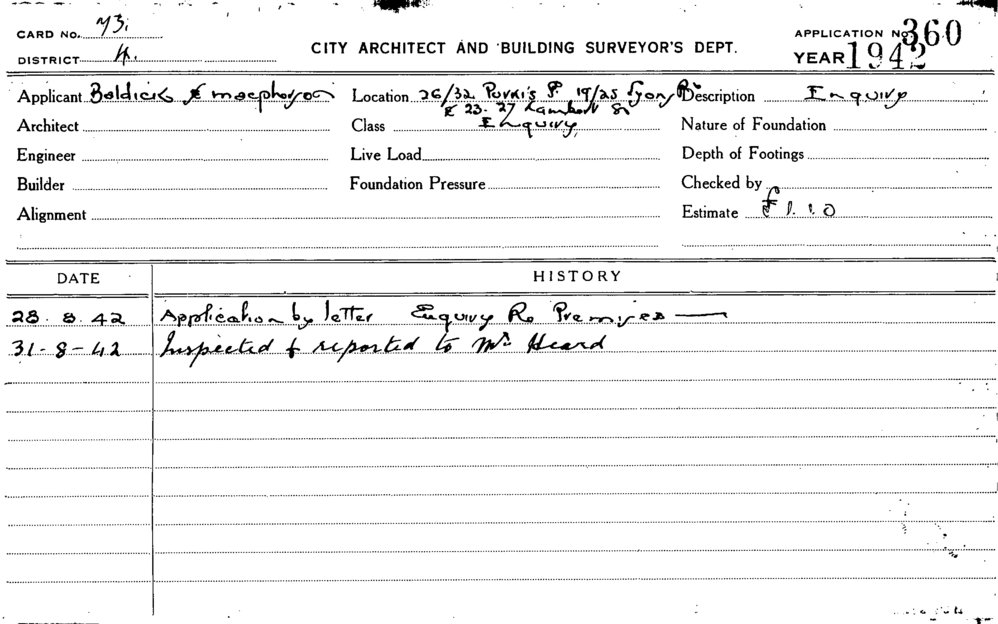 CARD No. 73.
APPLICATION No. 360
DISTRICT 4.
CITY ARCHITECT AND BUILDING SURVEYOR'S DEPT.
YEAR 1942
Applicant Baldick & macpherson Location 26/32 Purkis St 19/25 Lyons Description Enquiry
& 23. 27 Lambert St
Architect Class Enquiry, Nature of Foundation
Engineer Live Load Depth of Footings
Builder Foundation Pressure Checked by
Alignment Estimate £1.1.0
DATE HISTORY
28. 8. 42 Application by letter Enquiry Re Premises
31-8-42 Inspected & reported to Mr. Heard